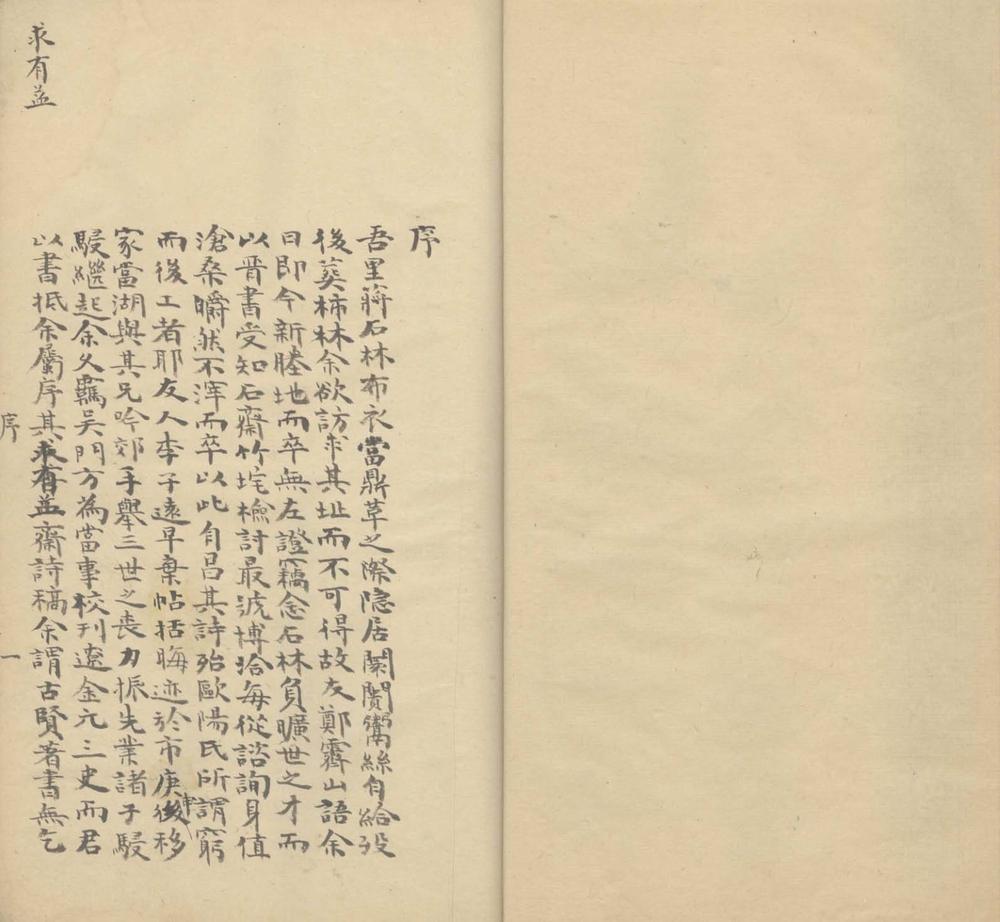 序
吾里蔣石林布衣當鼎革之際隐居闤闠鬻絲自給歿
後葬柿林余欲訪求其址而不可得故友鄭霽山語余
曰即今新塍地而卒無左證竊念石林負曠世之才而
以晋書受知石齋竹垞檢討最號博洽每從諮詢身值
滄桑皭然不滓而卒以此自昌其詩殆歐陽氏所謂窮
而後工者耶友人李子遠早棄帖括晦迹於市庚申後移
家當湖與其兄吟郊手舉三世之喪力振先業諸子駸
駸繼起余久羈吳門方為當事校刊遼金元三史而君
以書抵余屬序其求有益齋詩稿余謂古賢著書無乞
求有益
序
一